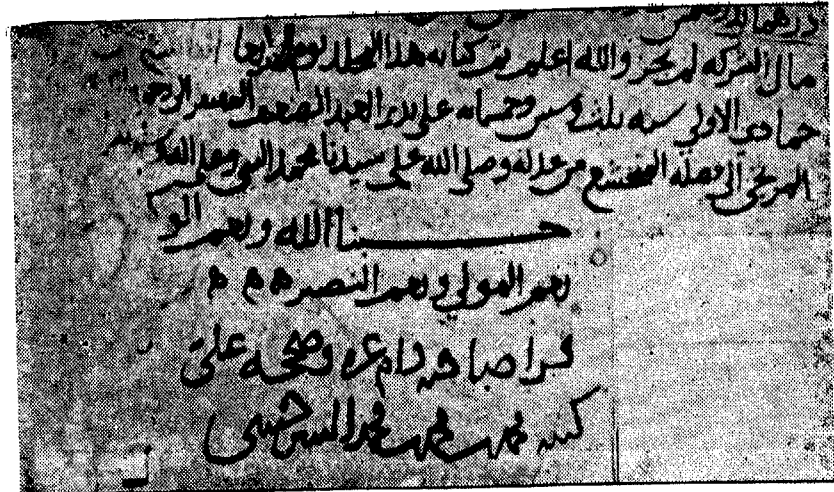 درهما
مال الشركه لم يجز والله اعلم تم كتابه هذا المجلد يوم الاربعا
جمادى الاولى سنه ثلث وخمسمايه على يدي العبد الضعيف
المرتجى الى فضله المتخشع من عدله وصلى الله على سيدنا محمد النبي وعلى اله و
حسبنا الله ونعم الو
نعم المولى ونعم النصير ه ه ه
قرا صاحبه دام عزه وصححه علي
كتبه محمد بن محمد بن محمد السرخسي